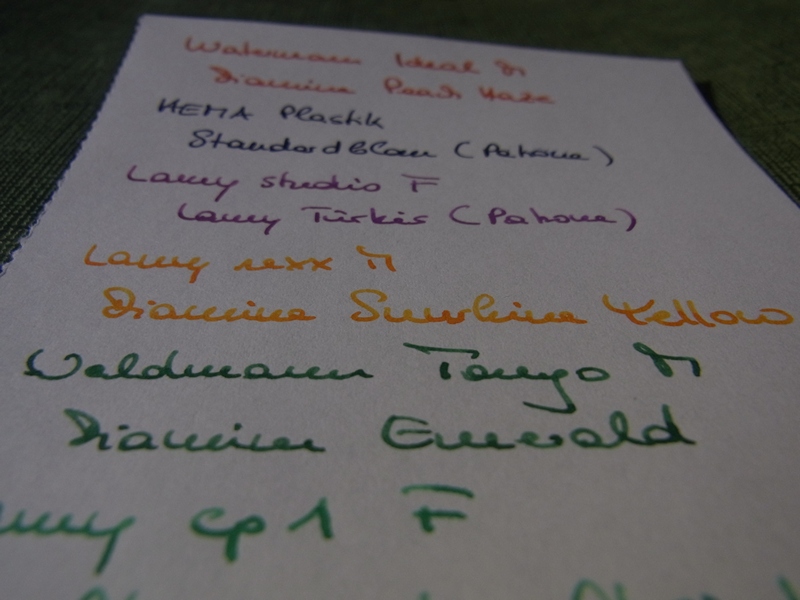 Waterman Ideal M
Diamine Peach Haze
HEMA Plastik
Standardblau (Patrone)
Lamy studio F
Lamy Türkis (Patrone)
Lamy nexx M
Diamine Sunshine Yellow
Waldmann Tango M
Diamine Emerald
amy cp1 F